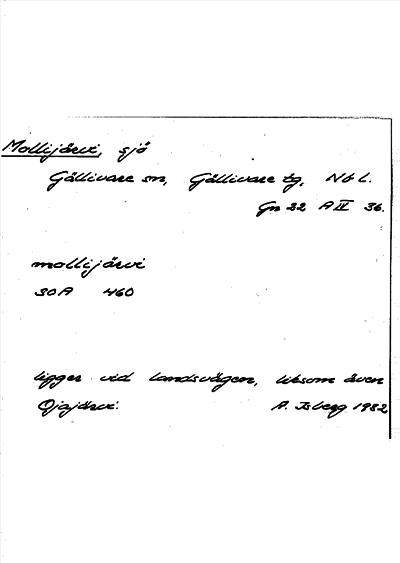 Mollijärvi, sjö
Gällivare sn, Gällivare tg, Nb l.
Gn 22 A IV 36.
mollijärvi
30A 460
ligger vid landsvägen, liksom även
Ojajärvi. A. Isberg 1932